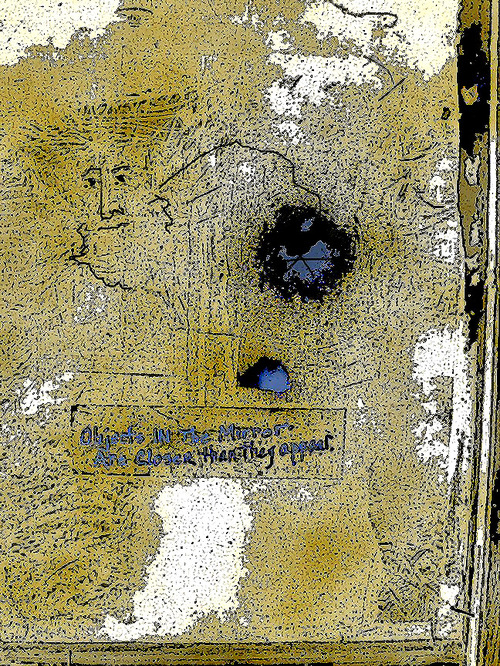 Objects IN The Mirror
Are Closer than They appear.